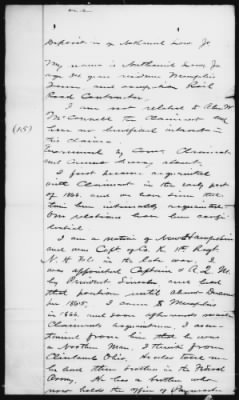 Deposition of Nathaniel Low Jr
My name is Nathaniel Low Jr
age 34 years residence Memphis
Tenn and occupation Rail
Road Contractor.
I am not related to Alex W
McConnell the Claimant and
have no beneficial interest in
the claim.
Examined by Com. Claimant
and
I first became acquainted
with Claimant in the early part
of 1866. and we have been since that
time intimately acquainted
Our relations have been confi-
dential.
(15)
I am a native of New Hampshire
and was Capt of Co. K. 11th Regt
N. H. Vol. in the late war. I
was appointed Captain & A. Q. M.
by President Lincoln and held
that position until about
1865. I came to Memphis
in 1866. and soon afterwards made
Claimants acquaintance, I ascer-
tained from him that he was
a Northern Man, I think from
Ohio. He also told me
he had three brothers in the Federal
Army. He has a brother who
now holds the office of Paymaster